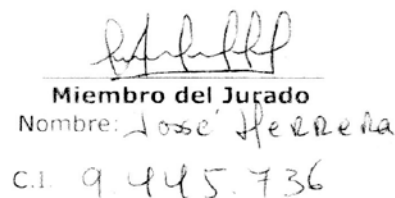 Miembro del Jurado
Nombre: José Herrera
C.I. 9.445.736